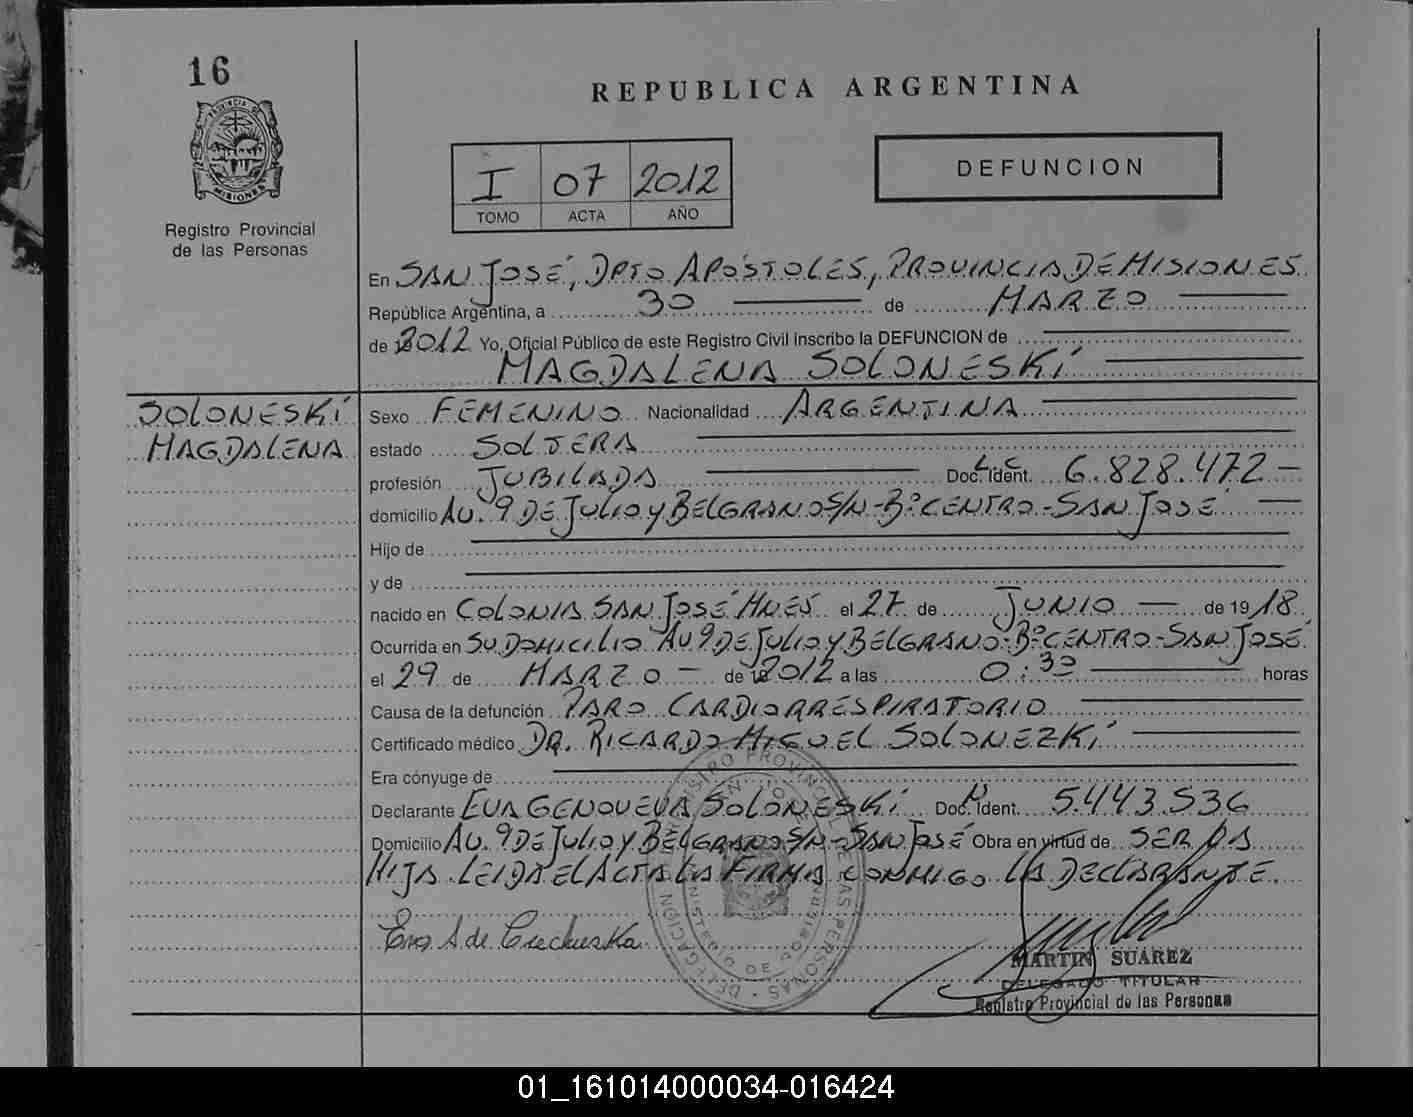 16
PROVINCIA DE
MISIONES
Registro Provincial
de las Personas
REPUBLICA ARGENTINA
I 07 2012
TOMO ACTA AÑO
DEFUNCION
En SAN JOSÉ, DPTO APÓSTOLES, PROVINCIA DE MISIONES
República Argentina, a 30 de MARZO
de 2012 Yo, Oficial Público de este Registro Civil inscribo la DEFUNCION de
MAGDALENA SOLONESKI
SOLONESKI
MAGDALENA
Sexo FEMENINO Nacionalidad ARGENTINA
estado SOLTERA
profesión JUBILADA Doc. Ident. L.C 6.828.472-
domicilio AV. 9 DE JULIO Y BELGRANO S/N-Bº CENTRO-SAN JOSÉ
Hijo de
y de
nacido en COLONIA SAN JOSÉ MNES el 27 de JUNIO de 1918
Ocurrida en SU DOMICILIO AV 9 DE JULIO Y BELGRANO-Bº CENTRO-SAN JOSÉ
el 29 de MARZO de 2012 a las 0:30 horas
Causa de la defunción PARO CARDIORRESPIRATORIO
Certificado médico DR. RICARDO MIGUEL SOLONEZKI
Era cónyuge de
Declarante EVA GENOVEVA SOLONESKI Doc. Ident. 5.443.536
Domicilio AV. 9 DE JULIO Y BELGRANO S/N-SAN JOSÉ Obra en virtud de SER LA
HIJA. LEIDA EL ACTA LA FIRMA CONMIGO LA DECLARANTE.
MARTIN SUAREZ
DELEGADO TITULAR
Registro Provincial de las Personas
REGISTRO PROVINCIAL DE LAS PERSONAS - DELEGACIÓN
01_161014000034-016424